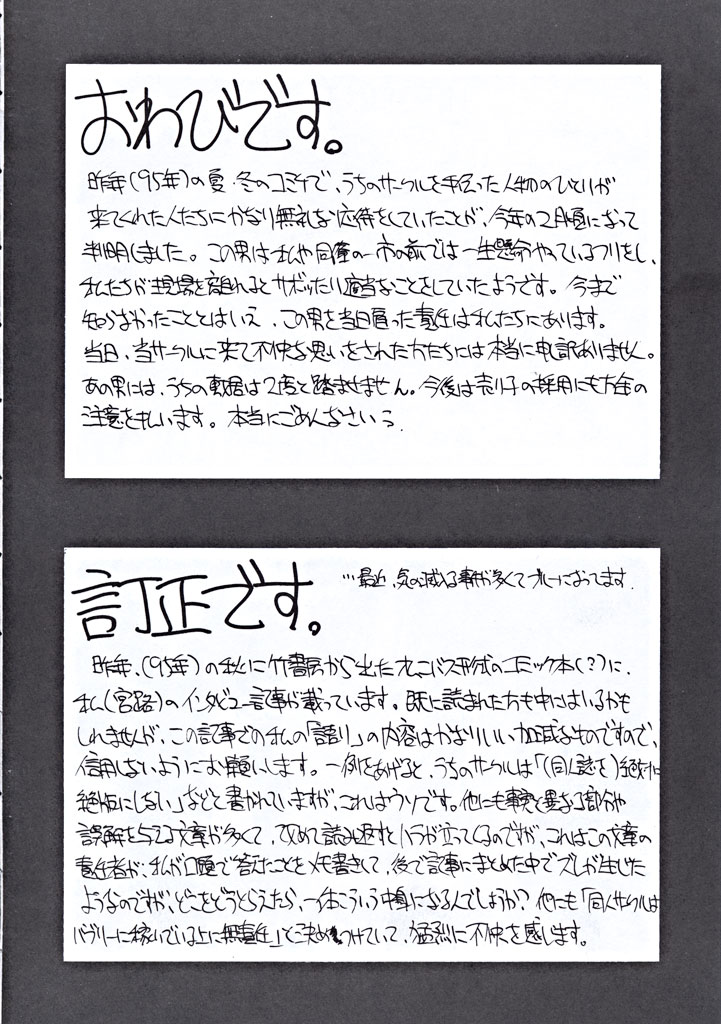 おわびです。
昨年(95年)の夏・冬のコミケで、うちのサークルを手伝った人物のひとりが
来てくれた人たちにかなり無礼な応待をしていたことが、今年の2月頃になって
判明しました。この男は私や同僚の一市の前では一生懸命やっているフリをし、
私たちが現場を離れるとサボッたり適当なことをしていたようです。今まで
知らなかったこととはいえ、この男を当日雇った責任は私たちにあります。
当日、当サークルに来て不快な思いをされた方たちには本当に申し訳ありません。
あの男には、うちの敷居は2度と踏ませません。今後は売り子の採用にも万全の
注意を払います。本当にごめんなさい
訂正です。
…最近、気の滅入る事が多くてブルーになってます.
昨年、(95年)の秋に竹書房から出たオムニバス形式のコミック本(?)に、
私(宮路)のインタビュー記事が載っています。既に読まれた方も中にはいるかも
しれませんが、この記事での私の「語り」の内容はかなりいい加減なものですので、
信用しないようにお願いします。一例をあげると、うちのサークルは「(同人誌を)絶対に
絶版にしない」などと書かれていますが、これはウソです。他にも事実と異なる部分や
誤解を与える文章が多くて、改めて読み返すとハラが立ってくるのですが、これはこの文章の
責任者が、私が口頭で答えたことをメモ書きして、後で記事にまとめた中でズレが生じた
ようなのですが、どこをどうとらえたら、一体こういう中身になるんでしょうか?他にも「同人サークルは
バブリーに稼いでいる上に無責任」と決めつけていて、猛烈に不快を感じます。